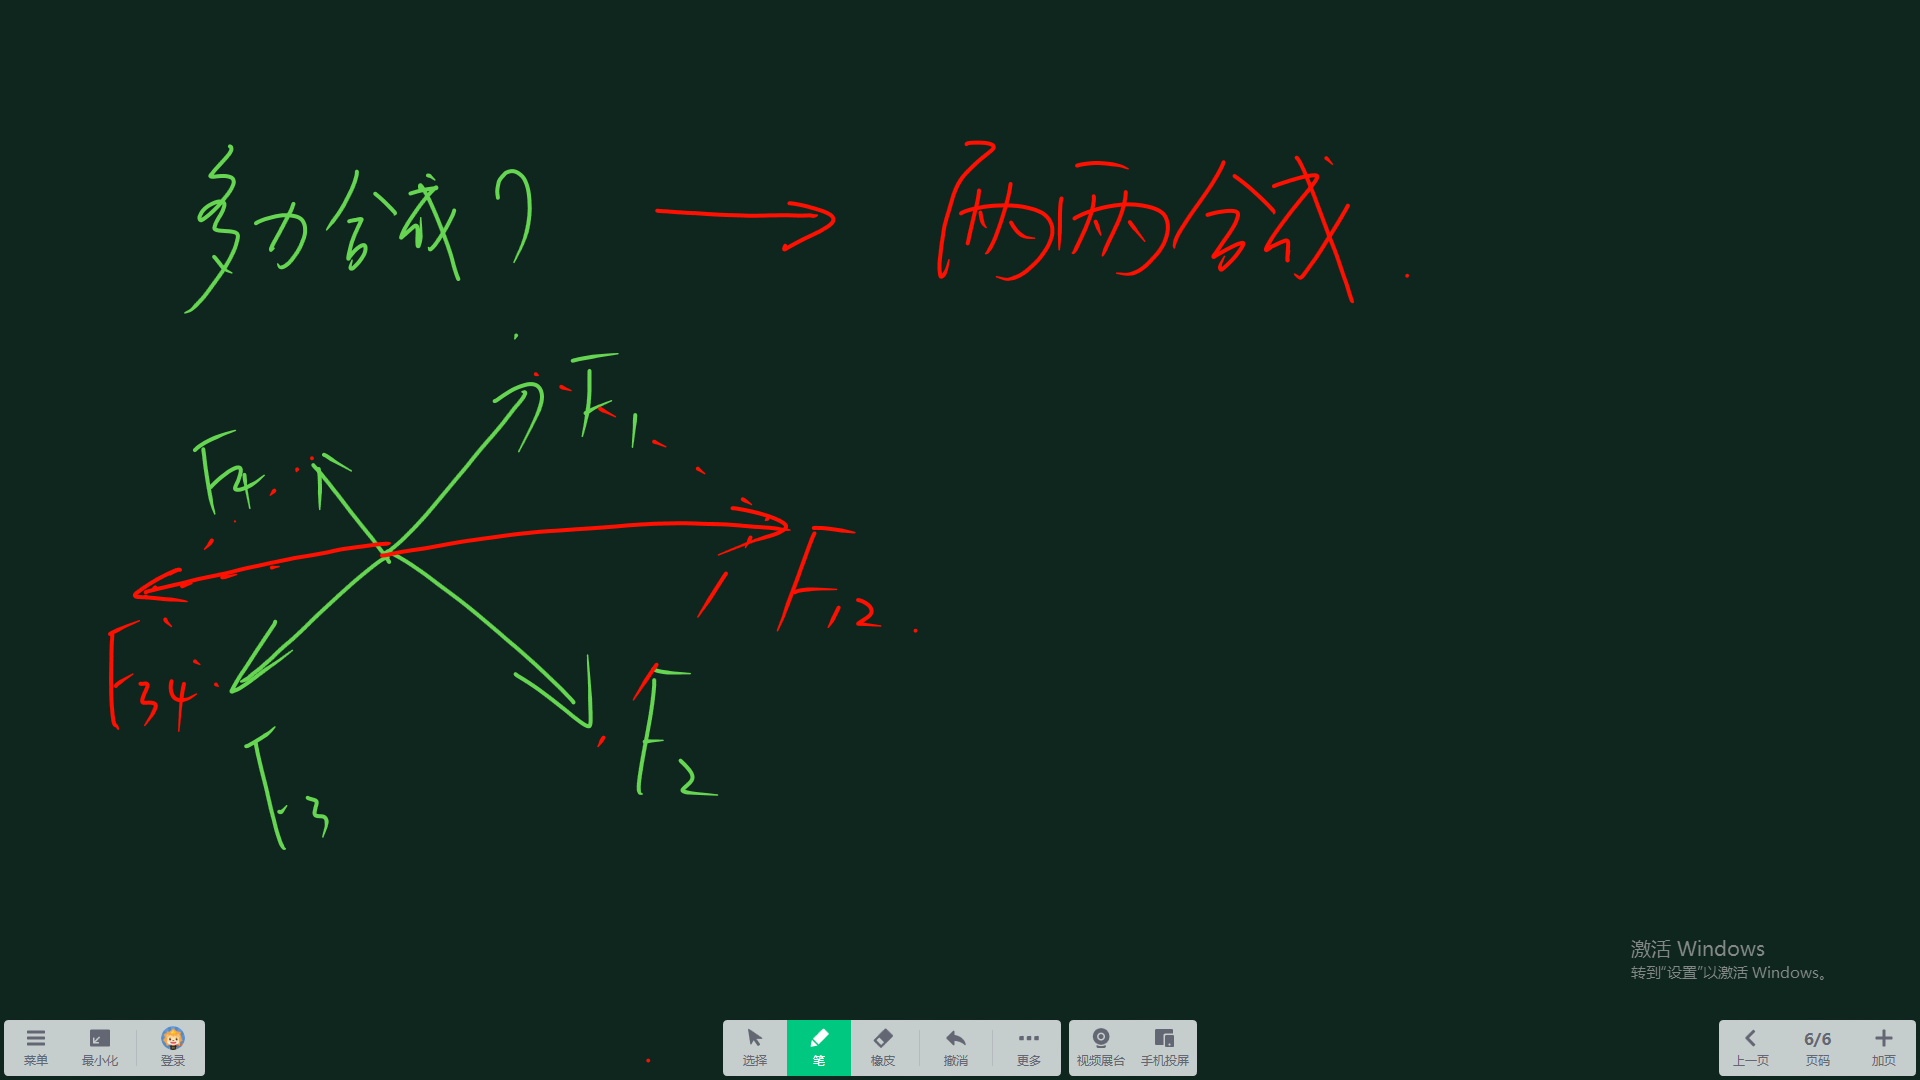 多力合成? → 两两合成.
F1
F4
F12
F34
F2
F3
激活 Windows
转到“设置”以激活 Windows。
菜单 最小化 登录 选择 笔 橡皮 撤消 更多 视频展台 手机投屏 上一页 6/6 页码 加页